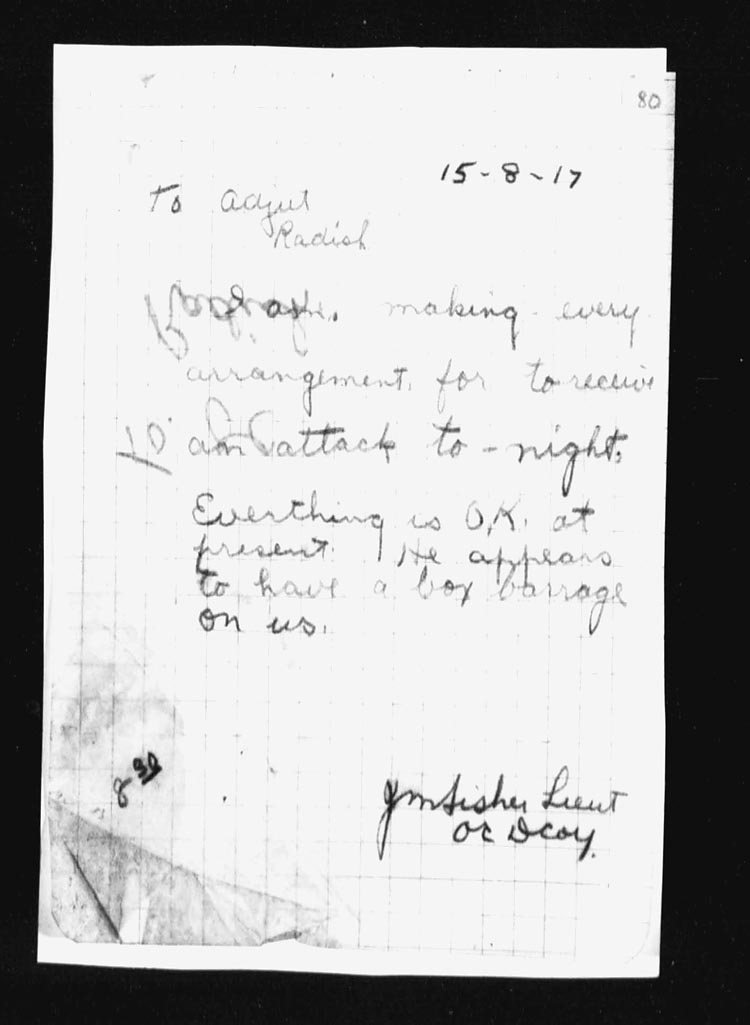 80
15-8-17
To Adjut
Radish
I am making every
arrangement. for to receive
an attack to-night.
Everthing is O.K. at
present. He appears
to have a box barrage
on us.
8 30
JM Fisher Lieut
OC D Coy.